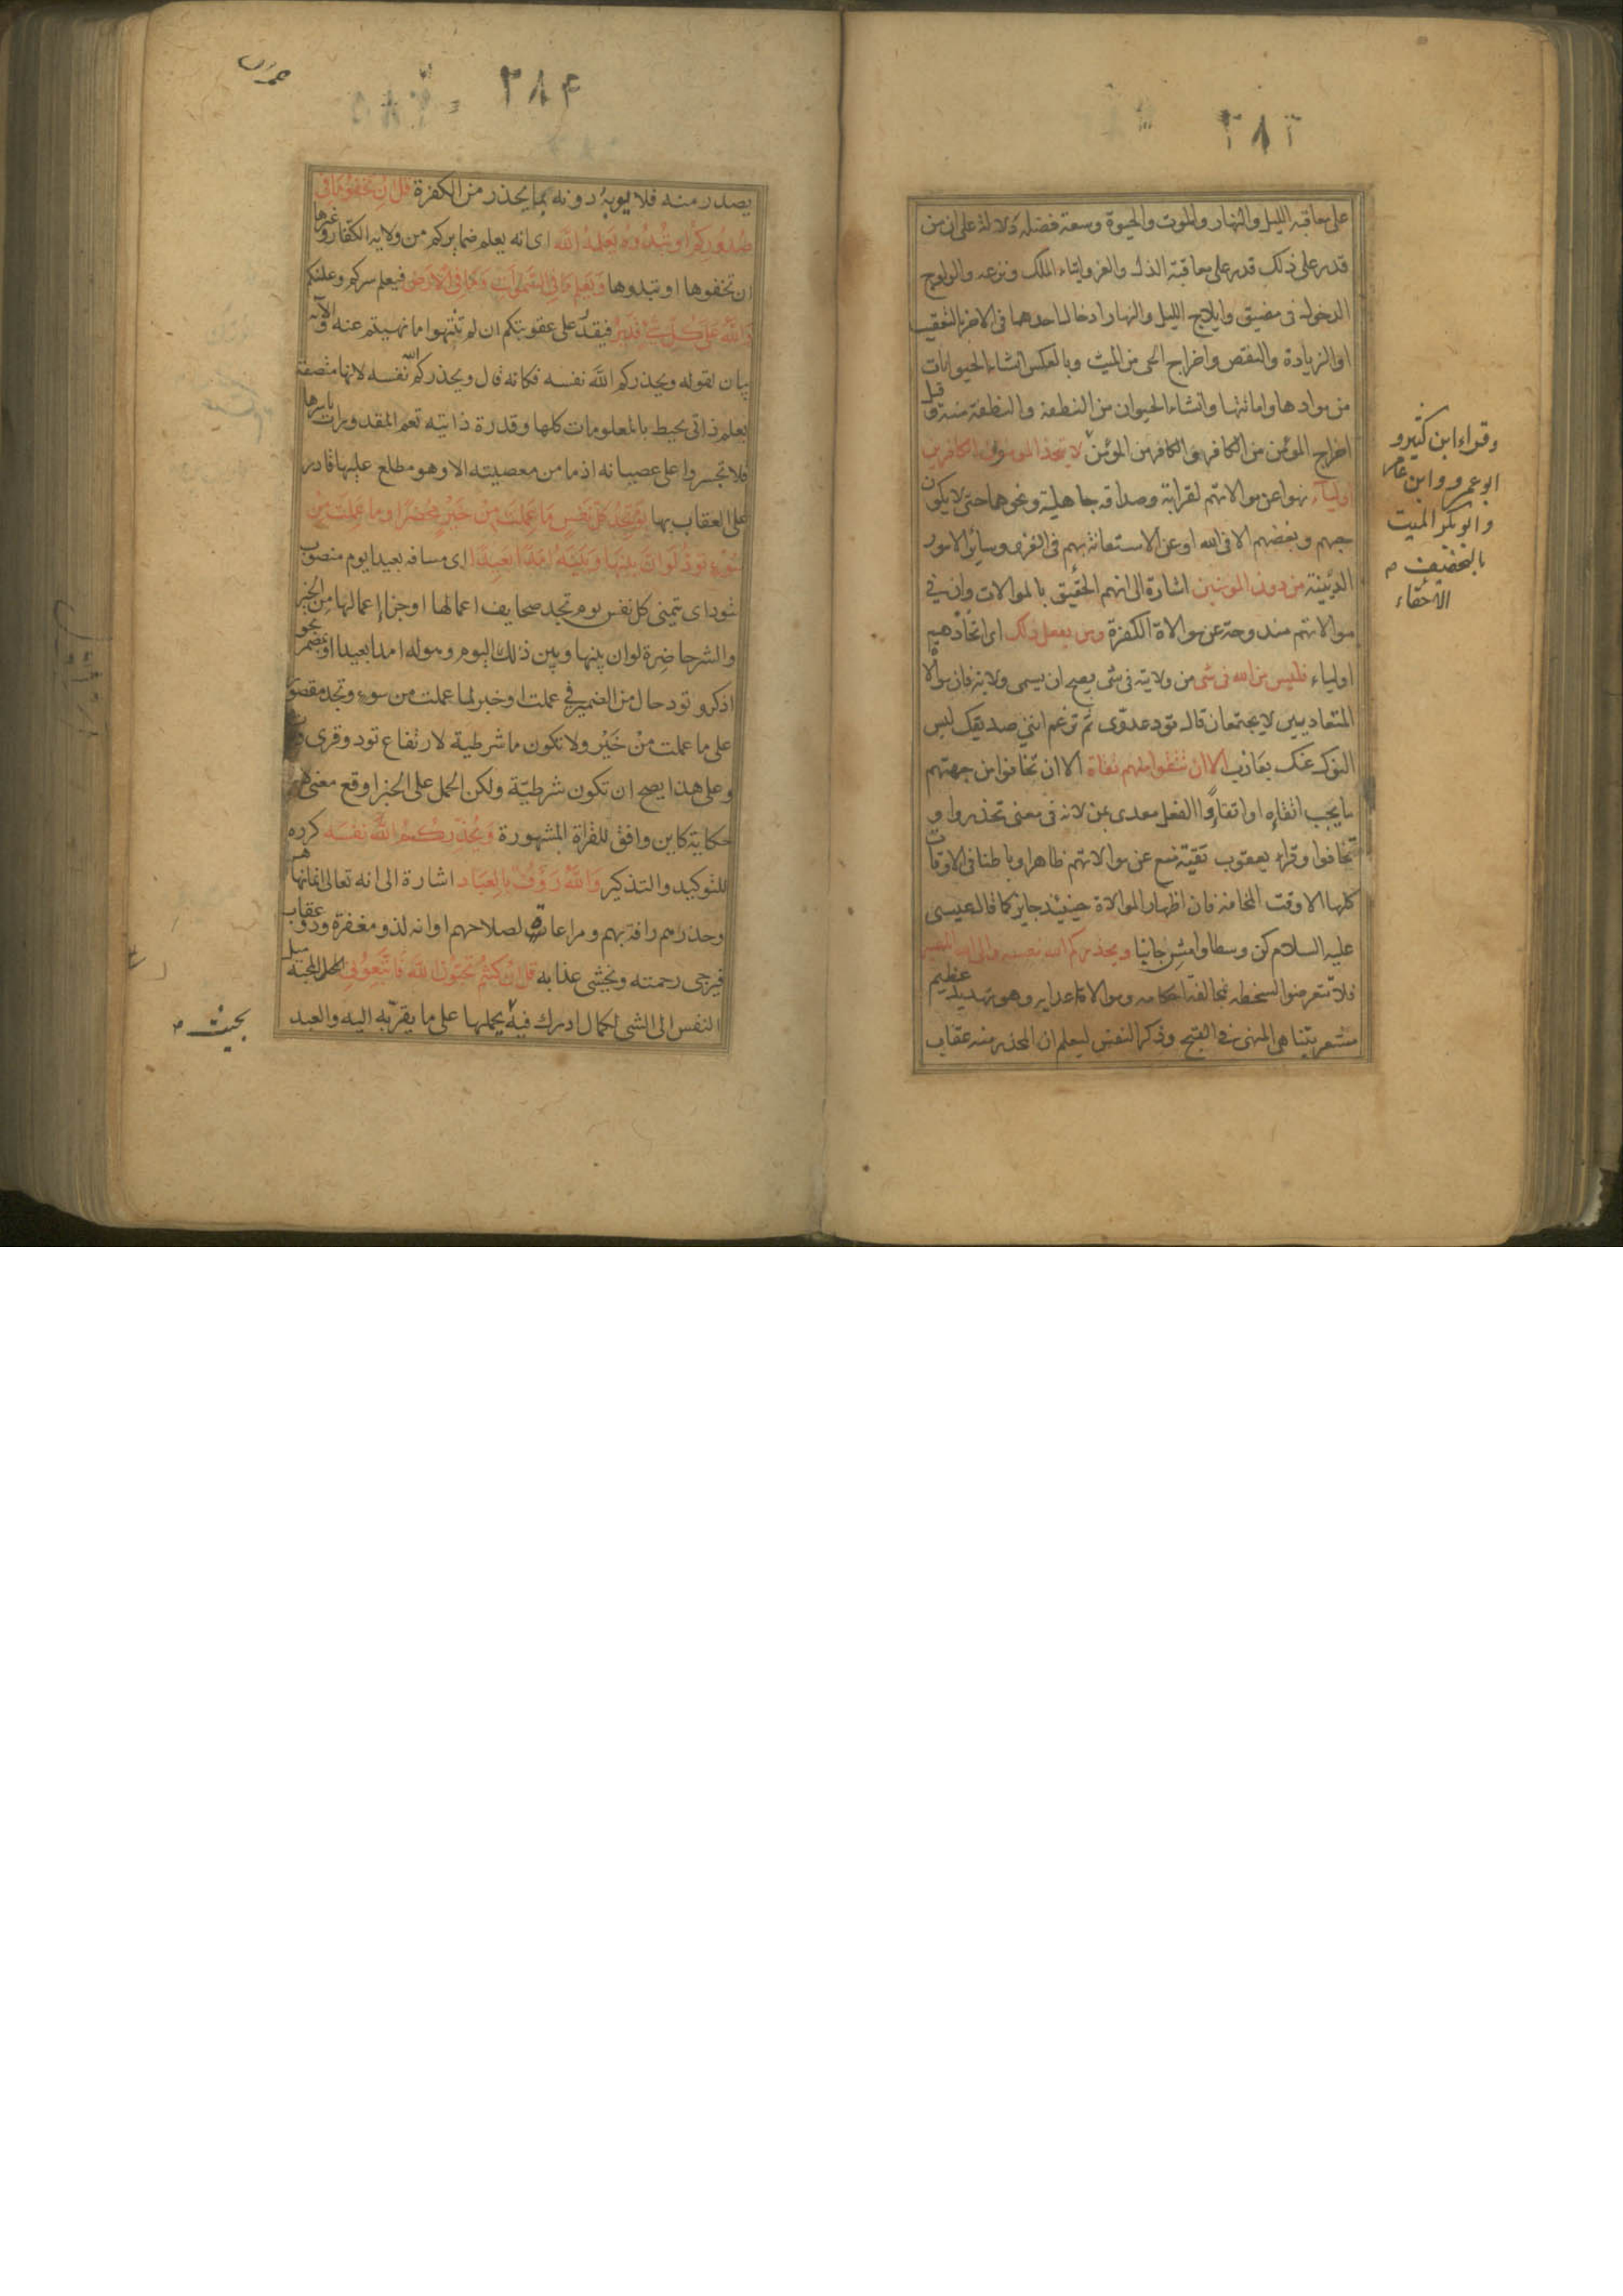 ٢٨٣
على معاقبة الليل والنهار والموت والحيوة وسعة فضله دلالة على ان من
قدر على ذلك قدر على معاقبة الذل والعز وايتاء الملك ونزعه والولوج
الدخول فى مضيق وايلاج الليل والنهار ادخال احدهما فى الاخر بالتعقيب
او الزيادة والنقص واخراج الحى من الميت وبالعكس انشاء الحيوانات
من موادها واماتتها وانشاء الحيوان من النطفة والنطفة منه وقيل
اخراج المؤمن من الكافر والكافر من المؤمن لا يتخذ المؤمنون الكافرين
اولياء نهوا عن موالاتهم لقرابة وصداقة جاهلية ونحوهما حتى لا يكون
حبهم وبغضهم الا فى الله او عن الاستعانة بهم فى الغزو وسائر الامور
الدينية من دون المومنين اشارة الى انهم الحقيق بالموالات وان فى
موالاتهم مندوحة عن موالاة الكفرة ومن يفعل ذلك اى اتخاذهم
اولياء فليس من الله فى شى من ولايته فى شى يصح ان يسمى ولاية فان موالاة
المتعاديين لا يجتمعان قال تود عدوى ثم تزعم اننى صديقك ليس
النوك عنك بعازب الا ان تتقوا منهم تقاة الا ان تخافوا من جهتهم
ما يجب اتقاؤه او اتقاء والفعل معدى بمن لانه فى معنى تحذروا و
تخافوا وقراء يعقوب تقية منع عن موالاتهم ظاهرا وباطنا فى الاوقات
كلها الا وقت المخافة فان اظهار الموالاة حينئذ جايز كما قال عيسى
عليه السلام كن وسطا وامش جانبا ويحذركم الله نفسه والى الله المصير
فلا تتعرضوا لسخطه بمخالفة احكامه وموالاة اعدايه وهو تهديد عظيم
مشعر بتناهى المنهى فى القبح وذكر النفس ليعلم ان المحذر منه عقاب
وقراء ابن كثير و
ابو عمرو وابن عامر
وابو بكر الميت
بالتخفيف م
الاحقاء
٢٨۴
يصدر منه فلا يوبه دونه بما يحذر من الكفرة قل ان تخفوا ما فى
صدوركم او تبدوه يعلمه الله اى انه يعلم ضمايركم من ولاية الكفار وغيرها
ان تخفوها او تبدوها ويعلم ما فى السموات وما فى الارض فيعلم سركم وعلنكم
والله على كل شئ قدير فيقدر على عقوبتكم ان لم تنتهوا ما نهيتم عنه والآية
بيان لقوله ويحذركم الله نفسه فكانه قال ويحذركم الله نفسه لانها متصفة
بعلم ذاتى يحيط بالمعلومات كلها وقدرة ذاتية تعم المقدورات باسرها
فلا تجسروا على عصيانه اذ ما من معصيته الا وهو مطلع عليها قادر
على العقاب بها يوم تجد كل نفس ما عملت من خير محضرا وما عملت من
سوء تود لو ان بينها وبينه امدا بعيدا اى مسافة بعيدا يوم منصوب
بتود اى تتمنى كل نفس يوم تجد صحايف اعمالها او جزاء اعمالها من الخير
والشر حاضرة لو ان بينها وبين ذلك اليوم وهوله امدا بعيدا او بمضمر نحو
اذكر و تود حال من الضمير فى عملت او خبر لما عملت من سوء وتجد مقصور
على ما عملت من خير ولا تكون ما شرطية لارتفاع تود وقرى
وعلى هذا يصح ان تكون شرطية ولكن الحمل على الخبر اوقع معنى
حكاية كاين وافق للقراة المشهورة ويحذركم الله نفسه كرره
للتوكيد والتذكير والله رؤف بالعباد اشارة الى انه تعالى انما نهاهم
وحذرهم رافة بهم ومراعاة لصلاحهم او انه لذو مغفرة وذو عقاب
فيرجى رحمته ويخشى عذابه قل ان كنتم تحبون الله فاتبعونى المحبة ميل
النفس الى الشى لكمال ادرك فيه يحملها على ما يقربه اليه والعبد
بحيث م